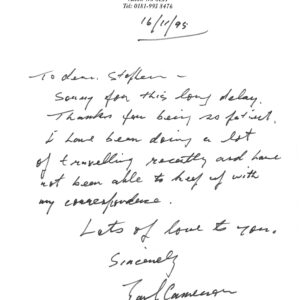 Tel: 0181-995 8476
16/11/95
To dear Stephen –
Sorry for this long delay.
Thanks for being so patient.
I have been doing a lot
of travelling recently and have
not been able to keep up with
my correspondence.
Lots of love to you.
Sincerely
Earl Cameron